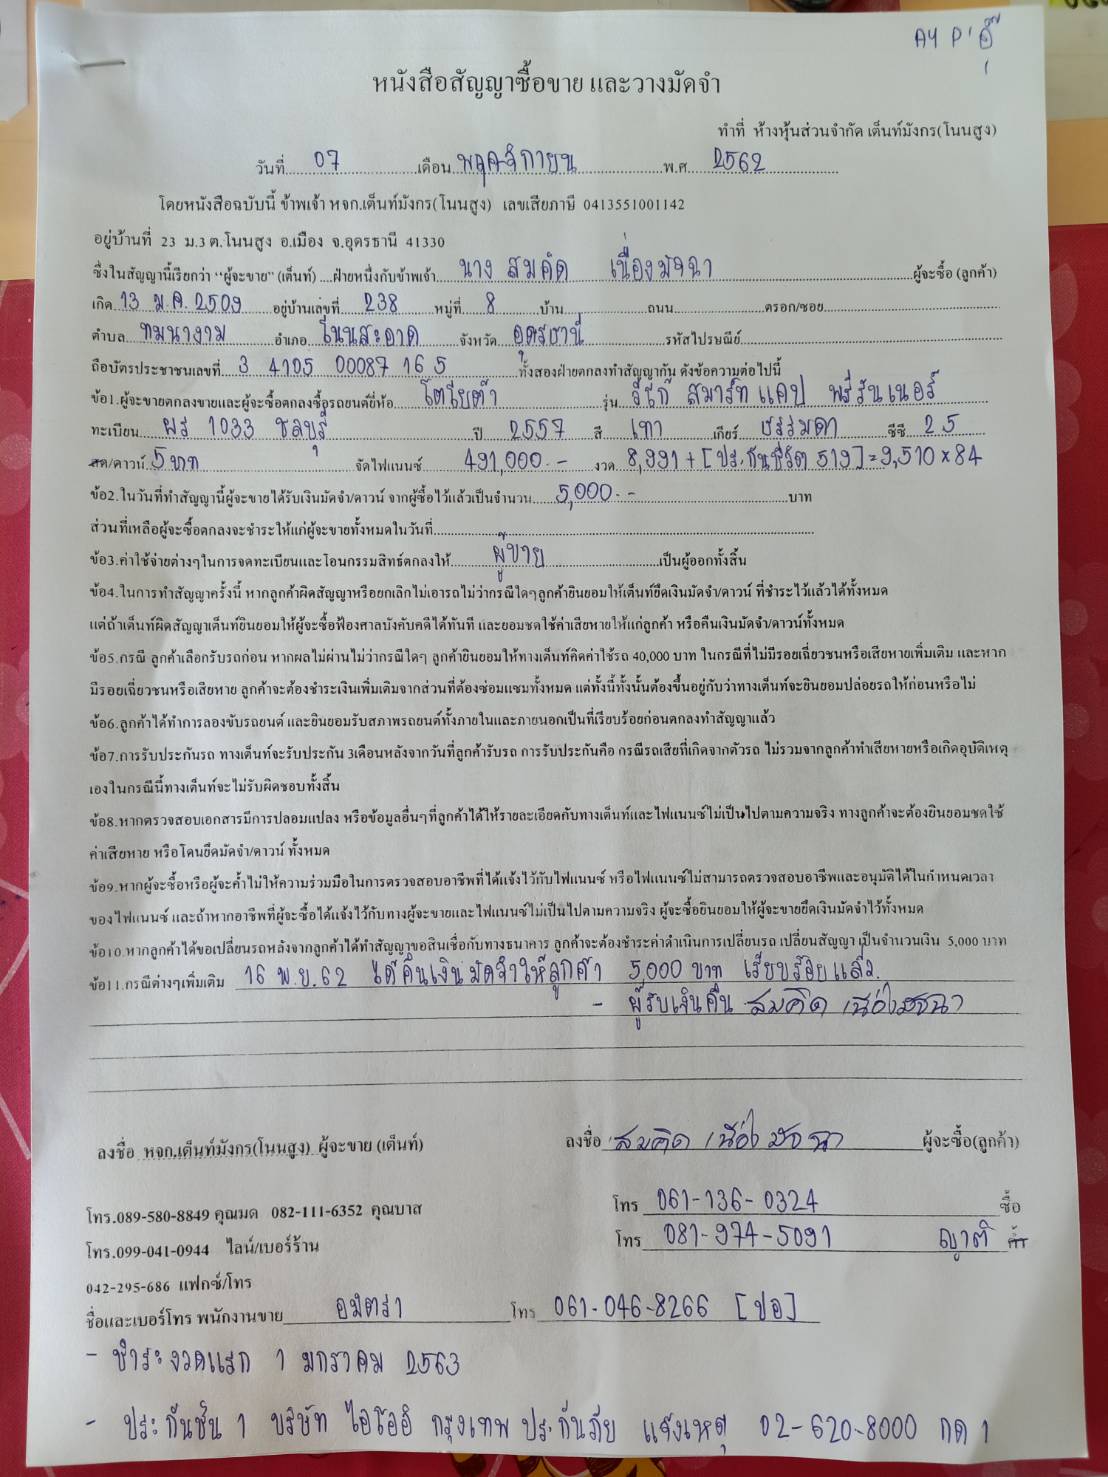 AY P'อุ๊
หนังสือสัญญาซื้อขาย และวางมัดจำ
ทำที่ ห้างหุ้นส่วนจำกัด เต็นท์มังกร(โนนสูง)
วันที่ 07 เดือน พฤศจิกายน พ.ศ. 2562
โดยหนังสือฉบับนี้ ข้าพเจ้า หจก.เต็นท์มังกร(โนนสูง) เลขเสียภาษี 0413551001142
อยู่บ้านที่ 23 ม.3 ต.โนนสูง อ.เมือง จ.อุดรธานี 41330
ซึ่งในสัญญานี้เรียกว่า "ผู้จะขาย" (เต็นท์) ....ฝ่ายหนึ่งกับข้าพเจ้า นาง สมคิด เนื่องมัจฉา ผู้จะซื้อ (ลูกค้า)
เกิด 13 ม.ค. 2509 อยู่บ้านเลขที่ 238 หมู่ที่ 8 บ้าน ถนน ตรอก/ซอย
ตำบล ทมนางาม อำเภอ โนนสะอาด จังหวัด อุดรธานี รหัสไปรษณีย์
ถือบัตรประชาชนเลขที่ 3 4105 00087 16 5 ทั้งสองฝ่ายตกลงทำสัญญากัน ดังข้อความต่อไปนี้
ข้อ1.ผู้จะขายตกลงขายและผู้จะซื้อตกลงซื้อรถยนต์ยี่ห้อ โตโยต้า รุ่น วีโก้ สมาร์ทแคป พรีรันเนอร์
ทะเบียน ผร 1033 ชลบุรี ปี 2557 สี เทา เกียร์ ธรรมดา ซีซี 2.5
สด/ดาวน์ 5 บาท จัดไฟแนนซ์ 491,000.- งวด 8,991 + [ประกันชีวิต 519] = 9,510 x 84
ข้อ2.ในวันที่ทำสัญญานี้ผู้จะขายได้รับเงินมัดจำ/ดาวน์ จากผู้ซื้อไว้แล้วเป็นจำนวน 5,000.- บาท
ส่วนที่เหลือผู้จะซื้อตกลงจะชำระให้แก่ผู้จะขายทั้งหมดในวันที่
ข้อ3.ค่าใช้จ่ายต่างๆในการจดทะเบียนและโอนกรรมสิทธ์ตกลงให้ ผู้ขาย เป็นผู้ออกทั้งสิ้น
ข้อ4.ในการทำสัญญาครั้งนี้ หากลูกค้าผิดสัญญาหรือยกเลิกไม่เอารถไม่ว่ากรณีใดๆลูกค้ายินยอมให้เต็นท์ยึดเงินมัดจำ/ดาวน์ ที่ชำระไว้แล้วได้ทั้งหมด
แต่ถ้าเต็นท์ผิดสัญญาเต็นท์ยินยอมให้ผู้จะซื้อฟ้องศาลบังคับคดีได้ทันที และยอมชดใช้ค่าเสียหายให้แก่ลูกค้า หรือคืนเงินมัดจำ/ดาวน์ทั้งหมด
ข้อ5.กรณี ลูกค้าเลือกรับรถก่อน หากผลไม่ผ่านไม่ว่ากรณีใดๆ ลูกค้ายินยอมให้ทางเต็นท์คิดค่าใช้รถ 40,000 บาท ในกรณีที่ไม่มีรอยเฉี่ยวชนหรือเสียหายเพิ่มเติม และหาก
มีรอยเฉี่ยวชนหรือเสียหาย ลูกค้าจะต้องชำระเงินเพิ่มเติมจากส่วนที่ต้องซ่อมแซมทั้งหมด แต่ทั้งนี้ทั้งนั้นต้องขึ้นอยู่กับว่าทางเต็นท์จะยินยอมปล่อยรถให้ก่อนหรือไม่
ข้อ6.ลูกค้าได้ทำการลองขับรถยนต์ และยินยอมรับสภาพรถยนต์ทั้งภายในและภายนอกเป็นที่เรียบร้อยก่อนตกลงทำสัญญาแล้ว
ข้อ7.การรับประกันรถ ทางเต็นท์จะรับประกัน 3เดือนหลังจากวันที่ลูกค้ารับรถ การรับประกันคือ กรณีรถเสียที่เกิดจากตัวรถ ไม่รวมจากลูกค้าทำเสียหายหรือเกิดอุบัติเหตุ
เองในกรณีนี้ทางเต็นท์จะไม่รับผิดชอบทั้งสิ้น
ข้อ8.หากตรวจสอบเอกสารมีการปลอมแปลง หรือข้อมูลอื่นๆที่ลูกค้าได้ให้รายละเอียดกับทางเต็นท์และไฟแนนซ์ไม่เป็นไปตามความจริง ทางลูกค้าจะต้องยินยอมชดใช้
ค่าเสียหาย หรือโดนยึดมัดจำ/ดาวน์ ทั้งหมด
ข้อ9.หากผู้จะซื้อหรือผู้จะค้ำไม่ให้ความร่วมมือในการตรวจสอบอาชีพที่ได้แจ้งไว้กับไฟแนนซ์ หรือไฟแนนซ์ไม่สามารถตรวจสอบอาชีพและอนุมัติได้ในกำหนดเวลา
ของไฟแนนซ์ และถ้าหากอาชีพที่ผู้จะซื้อได้แจ้งไว้กับทางผู้จะขายและไฟแนนซ์ไม่เป็นไปตามความจริง ผู้จะซื้อยินยอมให้ผู้จะขายยึดเงินมัดจำไว้ทั้งหมด
ข้อ10.หากลูกค้าได้ขอเปลี่ยนรถหลังจากลูกค้าได้ทำสัญญาขอสินเชื่อกับทางธนาคาร ลูกค้าจะต้องชำระค่าดำเนินการเปลี่ยนรถ เปลี่ยนสัญญา เป็นจำนวนเงิน 5,000 บาท
ข้อ11.กรณีต่างๆเพิ่มเติม 16 พ.ย.62 ได้คืนเงินมัดจำให้ลูกค้า 5,000 บาท เรียบร้อยแล้ว.
- ผู้รับเงินคืน สมคิด เนื่องมัจฉา
ลงชื่อ หจก.เต็นท์มังกร(โนนสูง) ผู้จะขาย (เต็นท์) ลงชื่อ สมคิด เนื่องมัจฉา ผู้จะซื้อ(ลูกค้า)
โทร.089-580-8849 คุณมด 082-111-6352 คุณบาส โทร 061-136-0324 ซื้อ
โทร.099-041-0944 ไลน์/เบอร์ร้าน โทร 081-974-5091 ญาติ ค้ำ
042-295-686 แฟกซ์/โทร
ชื่อและเบอร์โทร พนักงานขาย อมิตรา โทร 061-046-8266 [ปอ]
- ชำระงวดแรก 1 มกราคม 2563
- ประกันชั้น 1 บริษัท ไอโออิ กรุงเทพ ประกันภัย แจ้งเหตุ 02-620-8000 กด 1